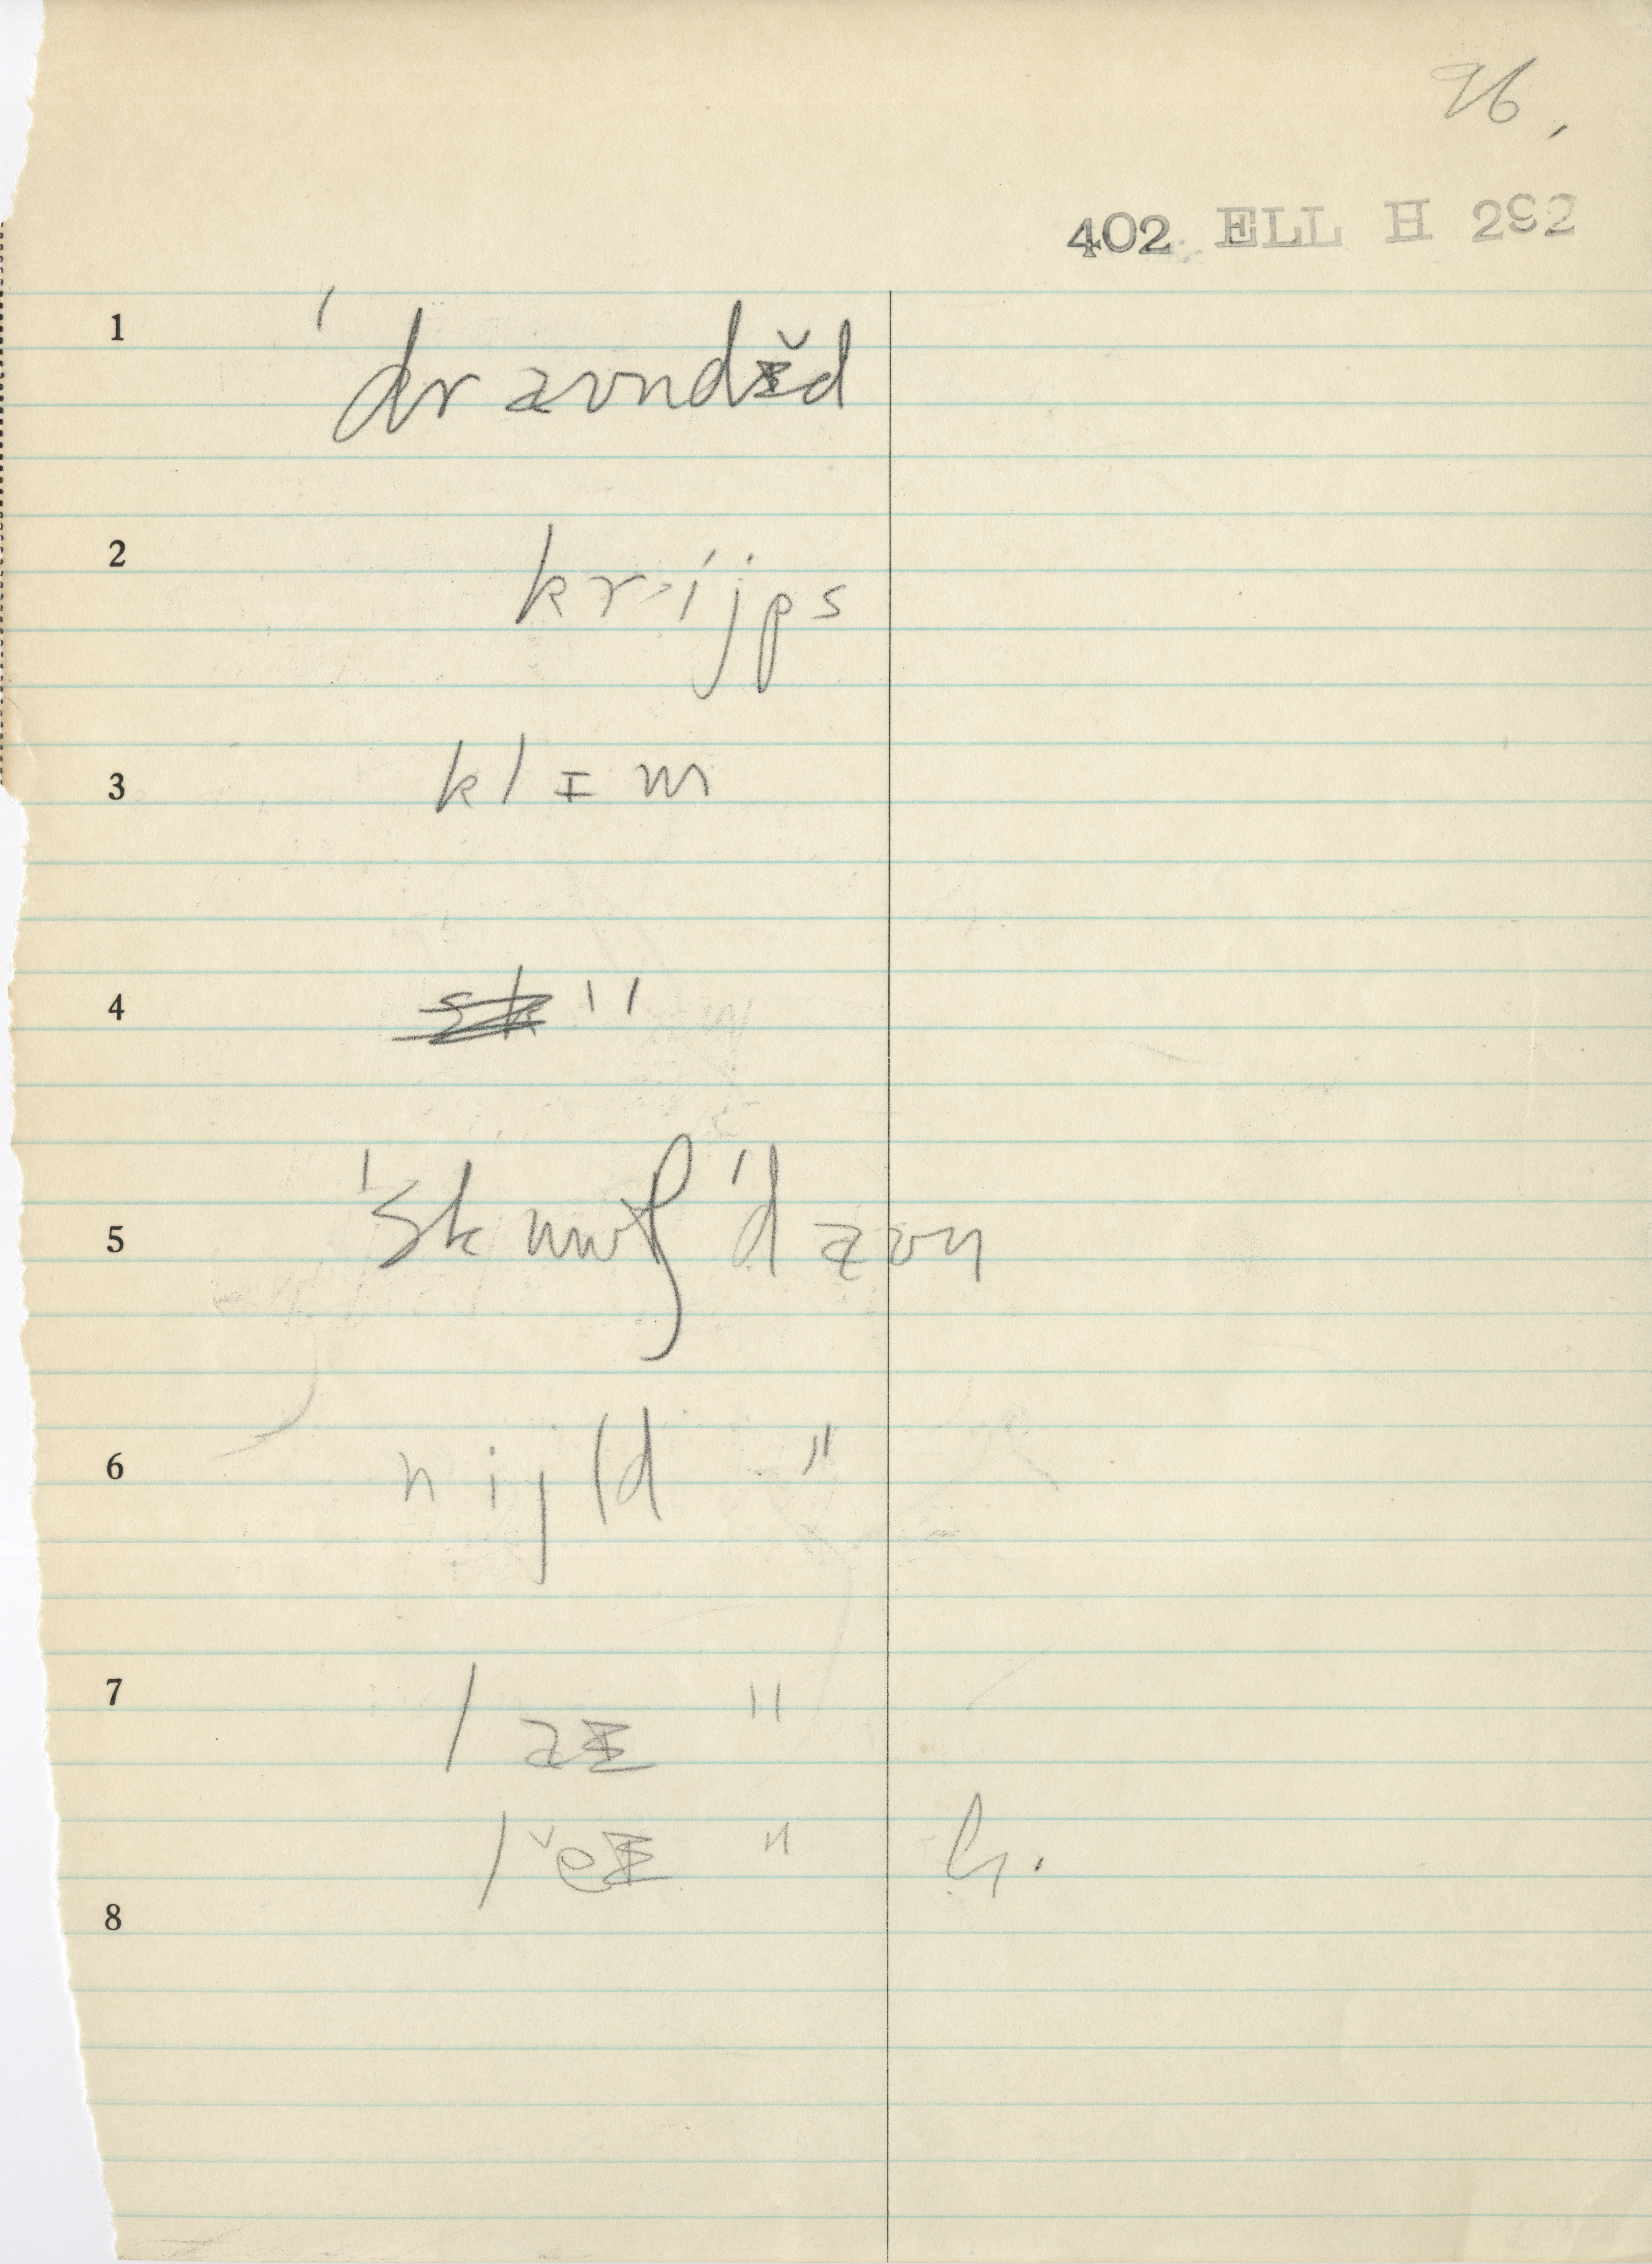 96,
402 ELL H 292
1 'dr aʊndɪ̌d
2 kr ijps
3 kl ɪ m
4 sk "
5 'sk uwʃ 'd aʊn
6 n ijld "
7 l aɪ "
l ̌eɪ " h.
8